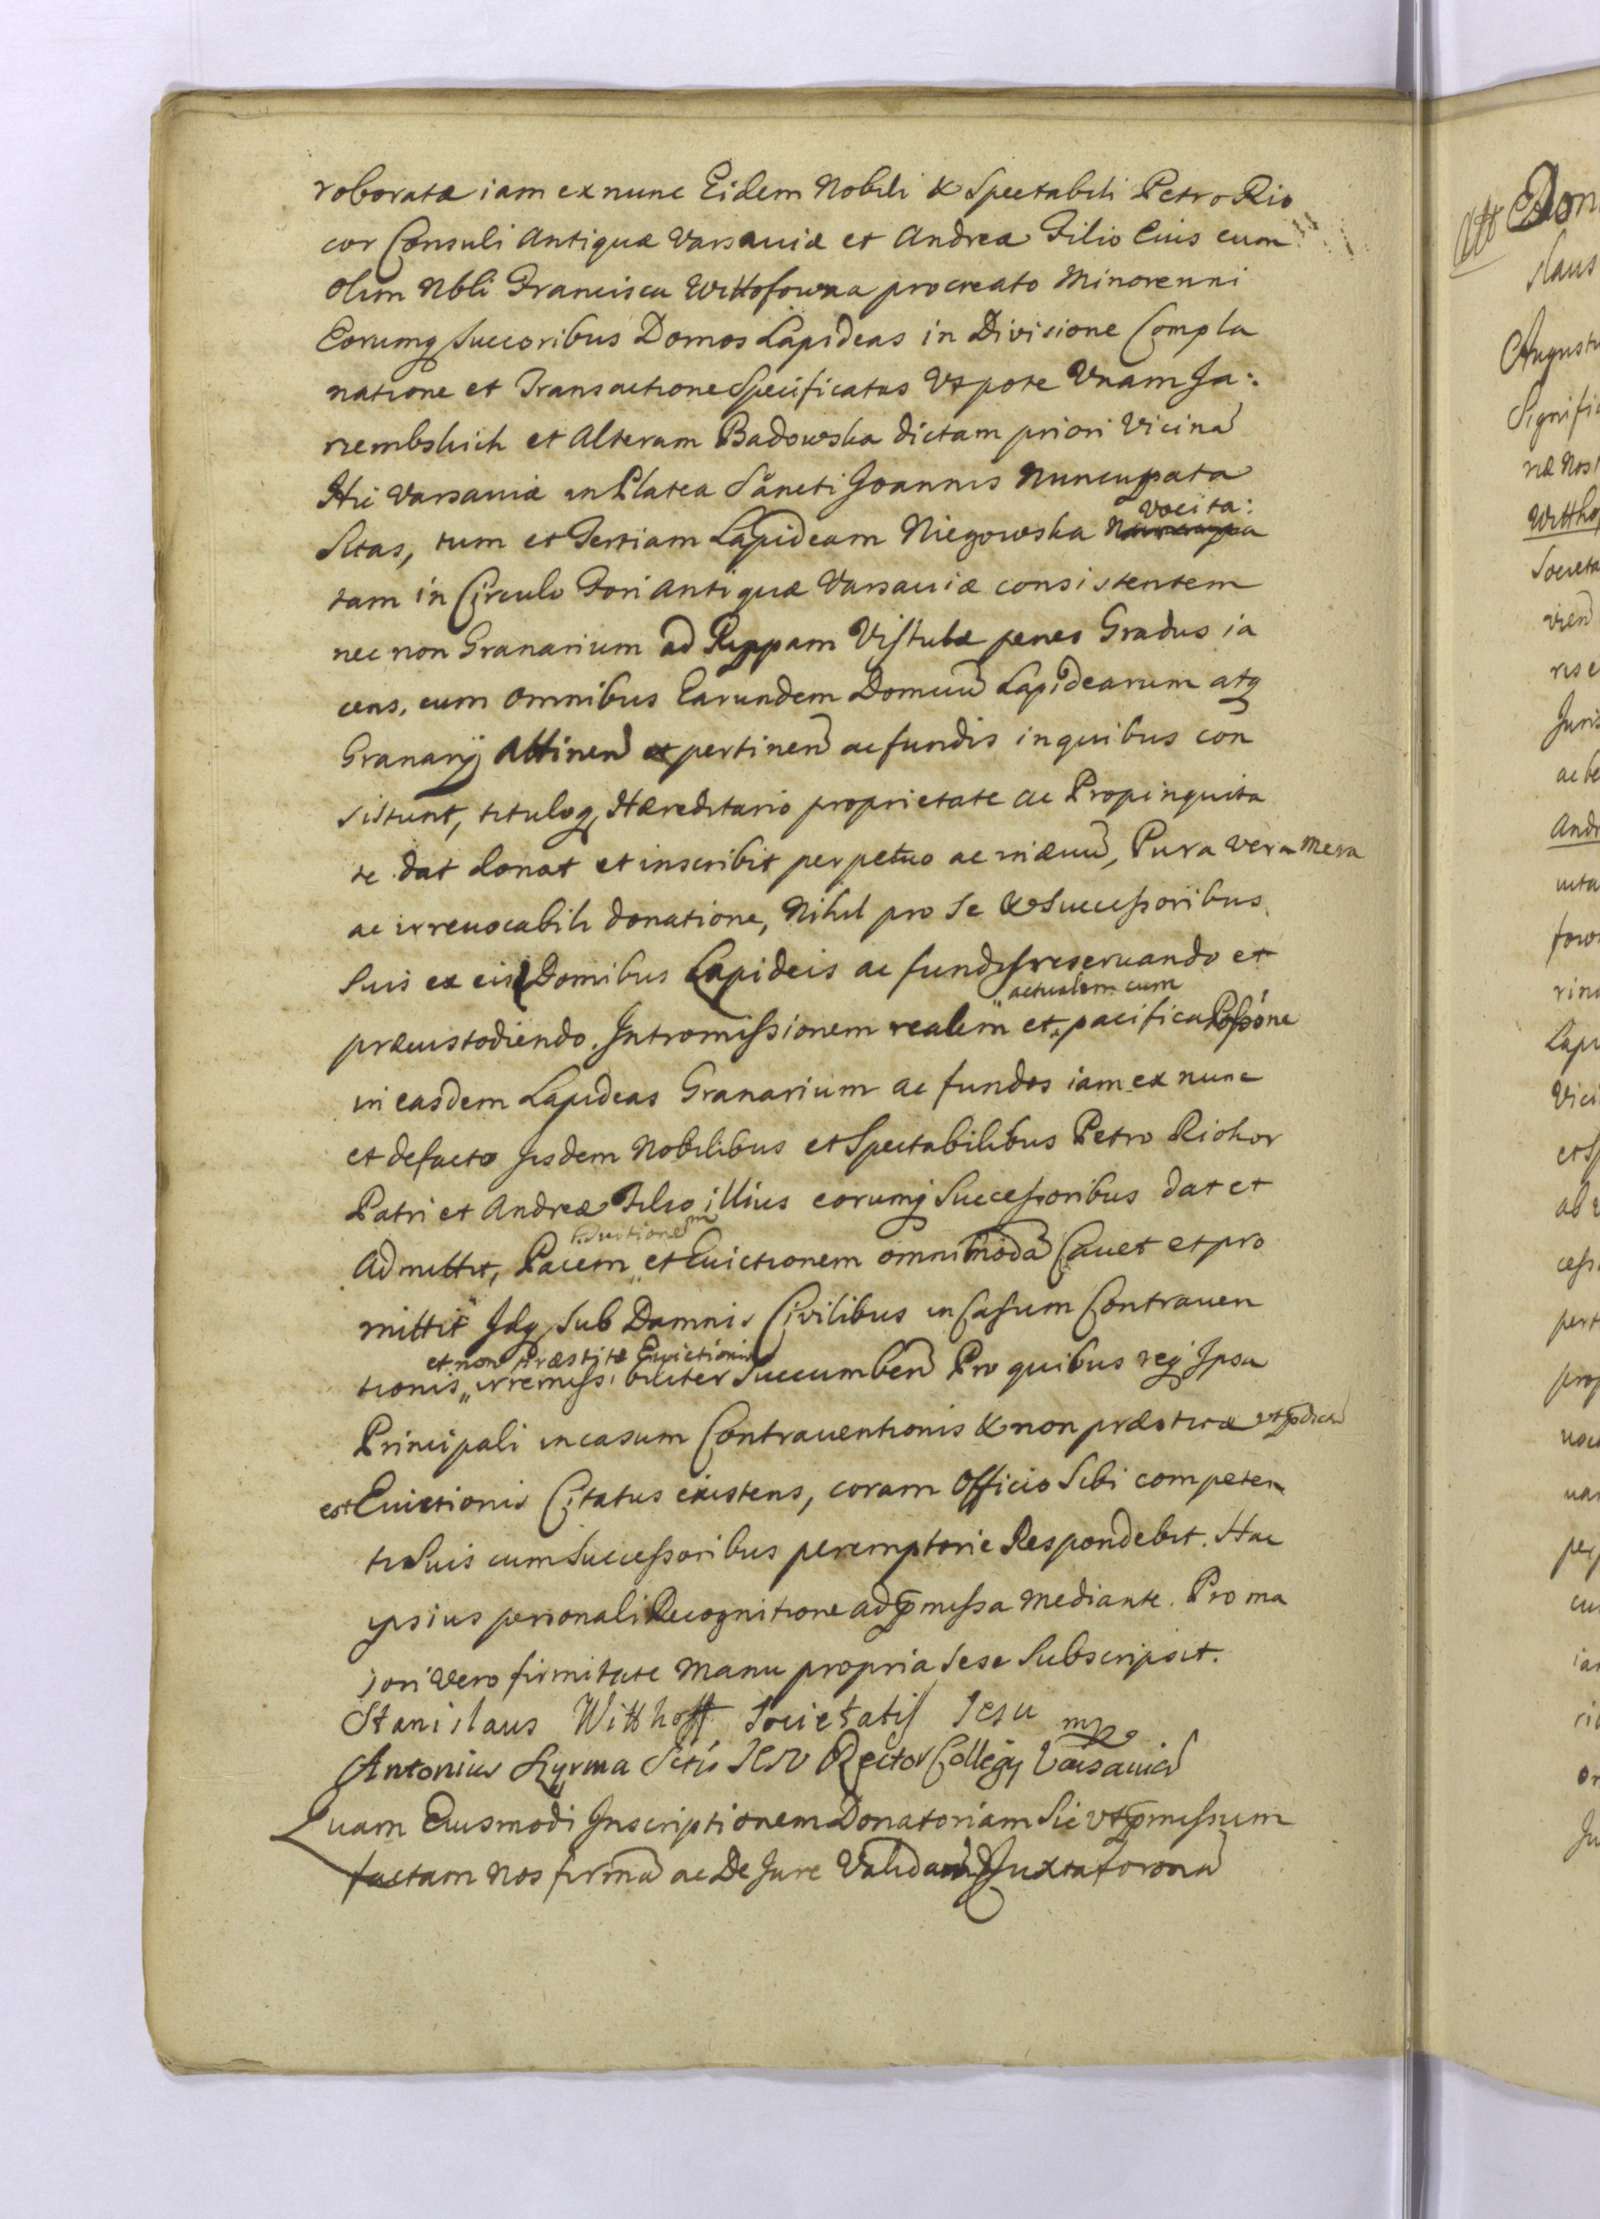 roboratæ iam ex nunc Eidem Nobili & Spectabili Petro Rio
cor Consuli Antiquæ Varsauiæ et Andreæ Filio Eius cum
olim Nbli Francisca Wittofowna procreato Minorenni
Eorumq Succoribus Domos Lapideas in Divisione Compla
natione et Transactione Specificatas Vtpote Vnam Ja:
rzembskich et Alteram Badowska dictam priori Vicinã
Hic Varsauiæ in Platea Sancti Joannis Nuncupata
Sitas, tum et Tertiam Lapideam Niegowska vocita:
tam in Circulo Fori Antiquæ Varsauiæ consistentem
nec non Granarium ad Rippam Vistulæ penes Gradus ia
cens, cum omnibus Earundem Domuũ Lapidearum atq
Granarij Attinen et pertinen ac fundis in quibus con
sistunt, tituloq Hæreditario proprietate ac Propinquita
te dat donat et inscribit perpetuo ac in æuũ, Pura vera Mera
ac irreuocabili donatione, Nihil pro Se & Successoribus
Suis ex eis Domibus Lapideis ac fundis reseruando et
actualem cum
præcustodiendo. Intromissionem realem et " pacifica Possone
in easdem Lapideas Granarium ac fundos iam ex nunc
et defacto Jisdem Nobilibus et Spectabilibus Petro Riokor
Patri et Andreæ Filio illius eorumq Successoribus dat et
Admittit, Pacem " et Euictionem omnimodã Cauet et pro
mittit Idq Sub Damnis Civilibus in Casum Contrauen
et non Præstitæ Euictionis
tionis " irremissibiliter Succumben Pro quibus reg Ipsa
Principali in casum Contrauentionis & non præstitæ vt p̄dict
est Euictionis Citatus existens, coram Officio Sibi competen
ti Suis cum Successoribus peremptorie Respondebit. Hac
ipsius personali Recognitione ad p̄missa mediante. Pro ma
iori vero firmitate Manu propria Sese Subscripsit.
Stanislaus Witthoff Societatis Jesu mp
Antonius Syrma Sctis JESV Rector Collegij Varsauien
Quam Eiusmodi Inscriptionem Donatoriam Sic vt p̄missum
factam Nos firmã ac De Jure Validam Juxta formã